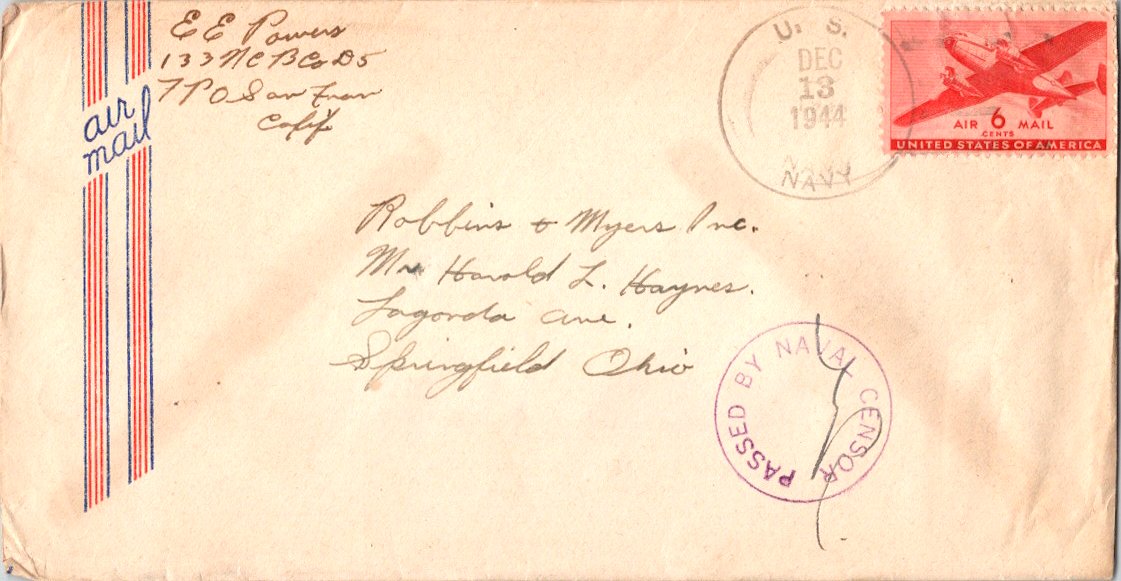 E E Powers
133 NCB Co D5
FPO San Fran
Calif.
air
mail
U. S.
DEC
13
1944
NAVY
AIR 6 MAIL
CENTS
UNITED STATES OF AMERICA
Robbins & Myers Inc.
Mr Harold L. Haynes.
Lagonda Ave.
Springfield Ohio
PASSED BY NAVAL CENSOR